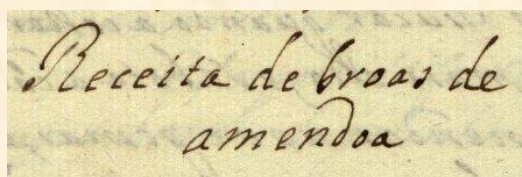 Receita de broas de
amendoa